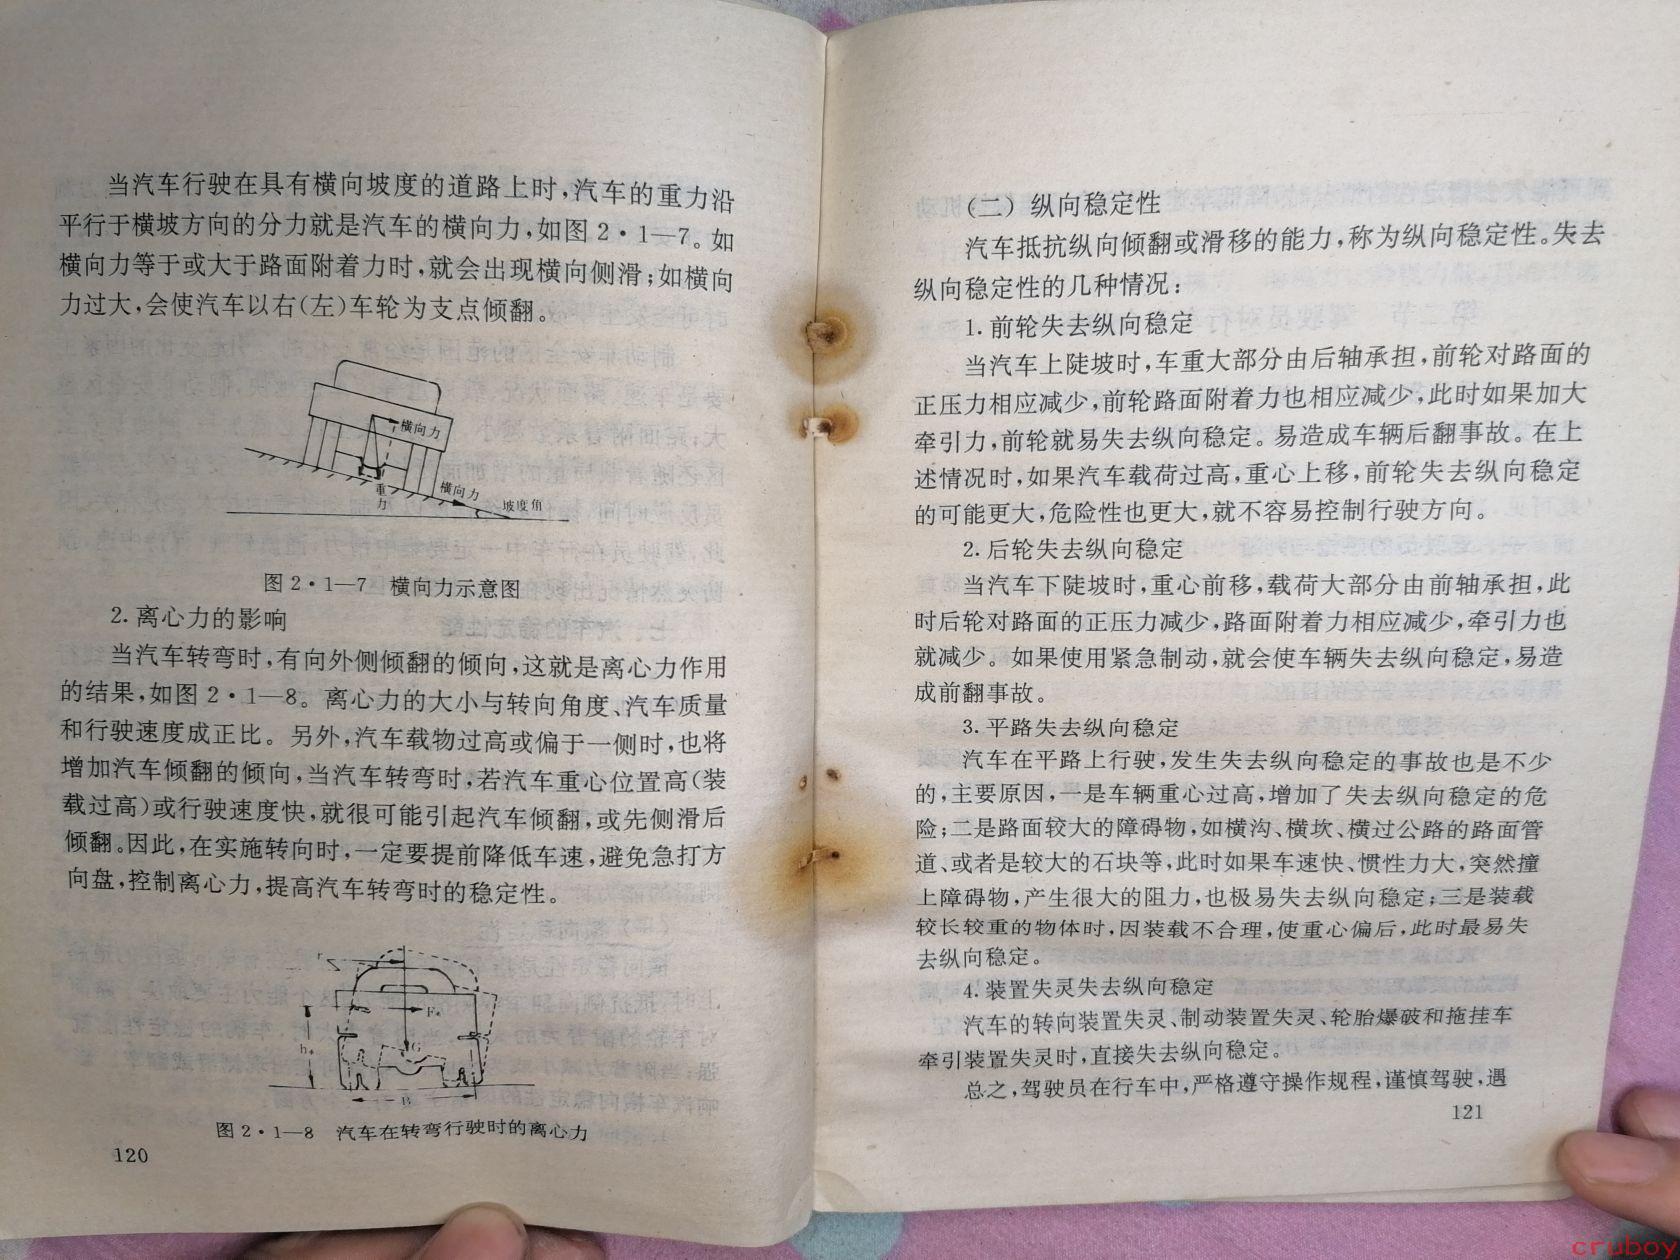 当汽车行驶在具有横向坡度的道路上时,汽车的重力沿
平行于横坡方向的分力就是汽车的横向力,如图2·1—7。如
横向力等于或大于路面附着力时,就会出现横向侧滑;如横向
力过大,会使汽车以右(左)车轮为支点倾翻。
横向力
重力
横向力
坡度角
图2·1—7 横向力示意图
2.离心力的影响
当汽车转弯时,有向外侧倾翻的倾向,这就是离心力作用
的结果,如图2·1—8。离心力的大小与转向角度、汽车质量
和行驶速度成正比。另外,汽车载物过高或偏于一侧时,也将
增加汽车倾翻的倾向,当汽车转弯时,若汽车重心位置高(装
载过高)或行驶速度快,就很可能引起汽车倾翻,或先侧滑后
倾翻。因此,在实施转向时,一定要提前降低车速,避免急打方
向盘,控制离心力,提高汽车转弯时的稳定性。
r
G
B
图2·1—8 汽车在转弯行驶时的离心力
120
(二)纵向稳定性
汽车抵抗纵向倾翻或滑移的能力,称为纵向稳定性。失去
纵向稳定性的几种情况:
1.前轮失去纵向稳定
当汽车上陡坡时,车重大部分由后轴承担,前轮对路面的
正压力相应减少,前轮路面附着力也相应减少,此时如果加大
牵引力,前轮就易失去纵向稳定。易造成车辆后翻事故。在上
述情况时,如果汽车载荷过高,重心上移,前轮失去纵向稳定
的可能更大,危险性也更大,就不容易控制行驶方向。
2.后轮失去纵向稳定
当汽车下陡坡时,重心前移,载荷大部分由前轴承担,此
时后轮对路面的正压力减少,路面附着力相应减少,牵引力也
就减少。如果使用紧急制动,就会使车辆失去纵向稳定,易造
成前翻事故。
3.平路失去纵向稳定
汽车在平路上行驶,发生失去纵向稳定的事故也是不少
的,主要原因,一是车辆重心过高,增加了失去纵向稳定的危
险;二是路面较大的障碍物,如横沟、横坎、横过公路的路面管
道、或者是较大的石块等,此时如果车速快、惯性力大,突然撞
上障碍物,产生很大的阻力,也极易失去纵向稳定;三是装载
较长较重的物体时,因装载不合理,使重心偏后,此时最易失
去纵向稳定。
4.装置失灵失去纵向稳定
汽车的转向装置失灵、制动装置失灵、轮胎爆破和拖挂车
牵引装置失灵时,直接失去纵向稳定。
总之,驾驶员在行车中,严格遵守操作规程,谨慎驾驶,遇
121
cruboy